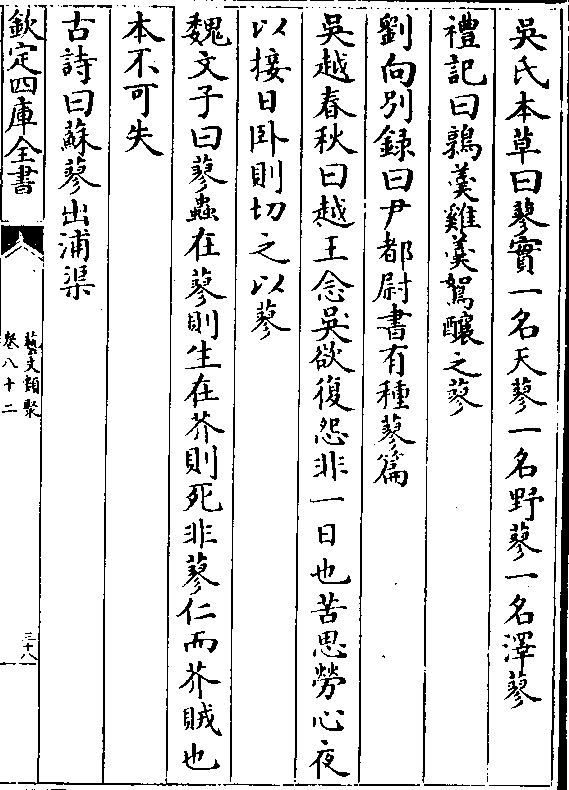 吳氏本草曰蓼實一名天蓼一名野蓼一名澤蓼
禮記曰鶉羮雞羮駕釀之蓼
劉向别録曰尹都尉書有種蓼篇
吳越春秋曰越王念吳欲復怨非一日也苦思勞心夜
以接日卧則切之以蓼
魏文子曰蓼蟲在蓼則生在芥則死非蓼仁而芥賊也
本不可失
古詩曰蘇蓼出浦渠
欽定四庫全書
藝文類聚
卷八十二
三十八